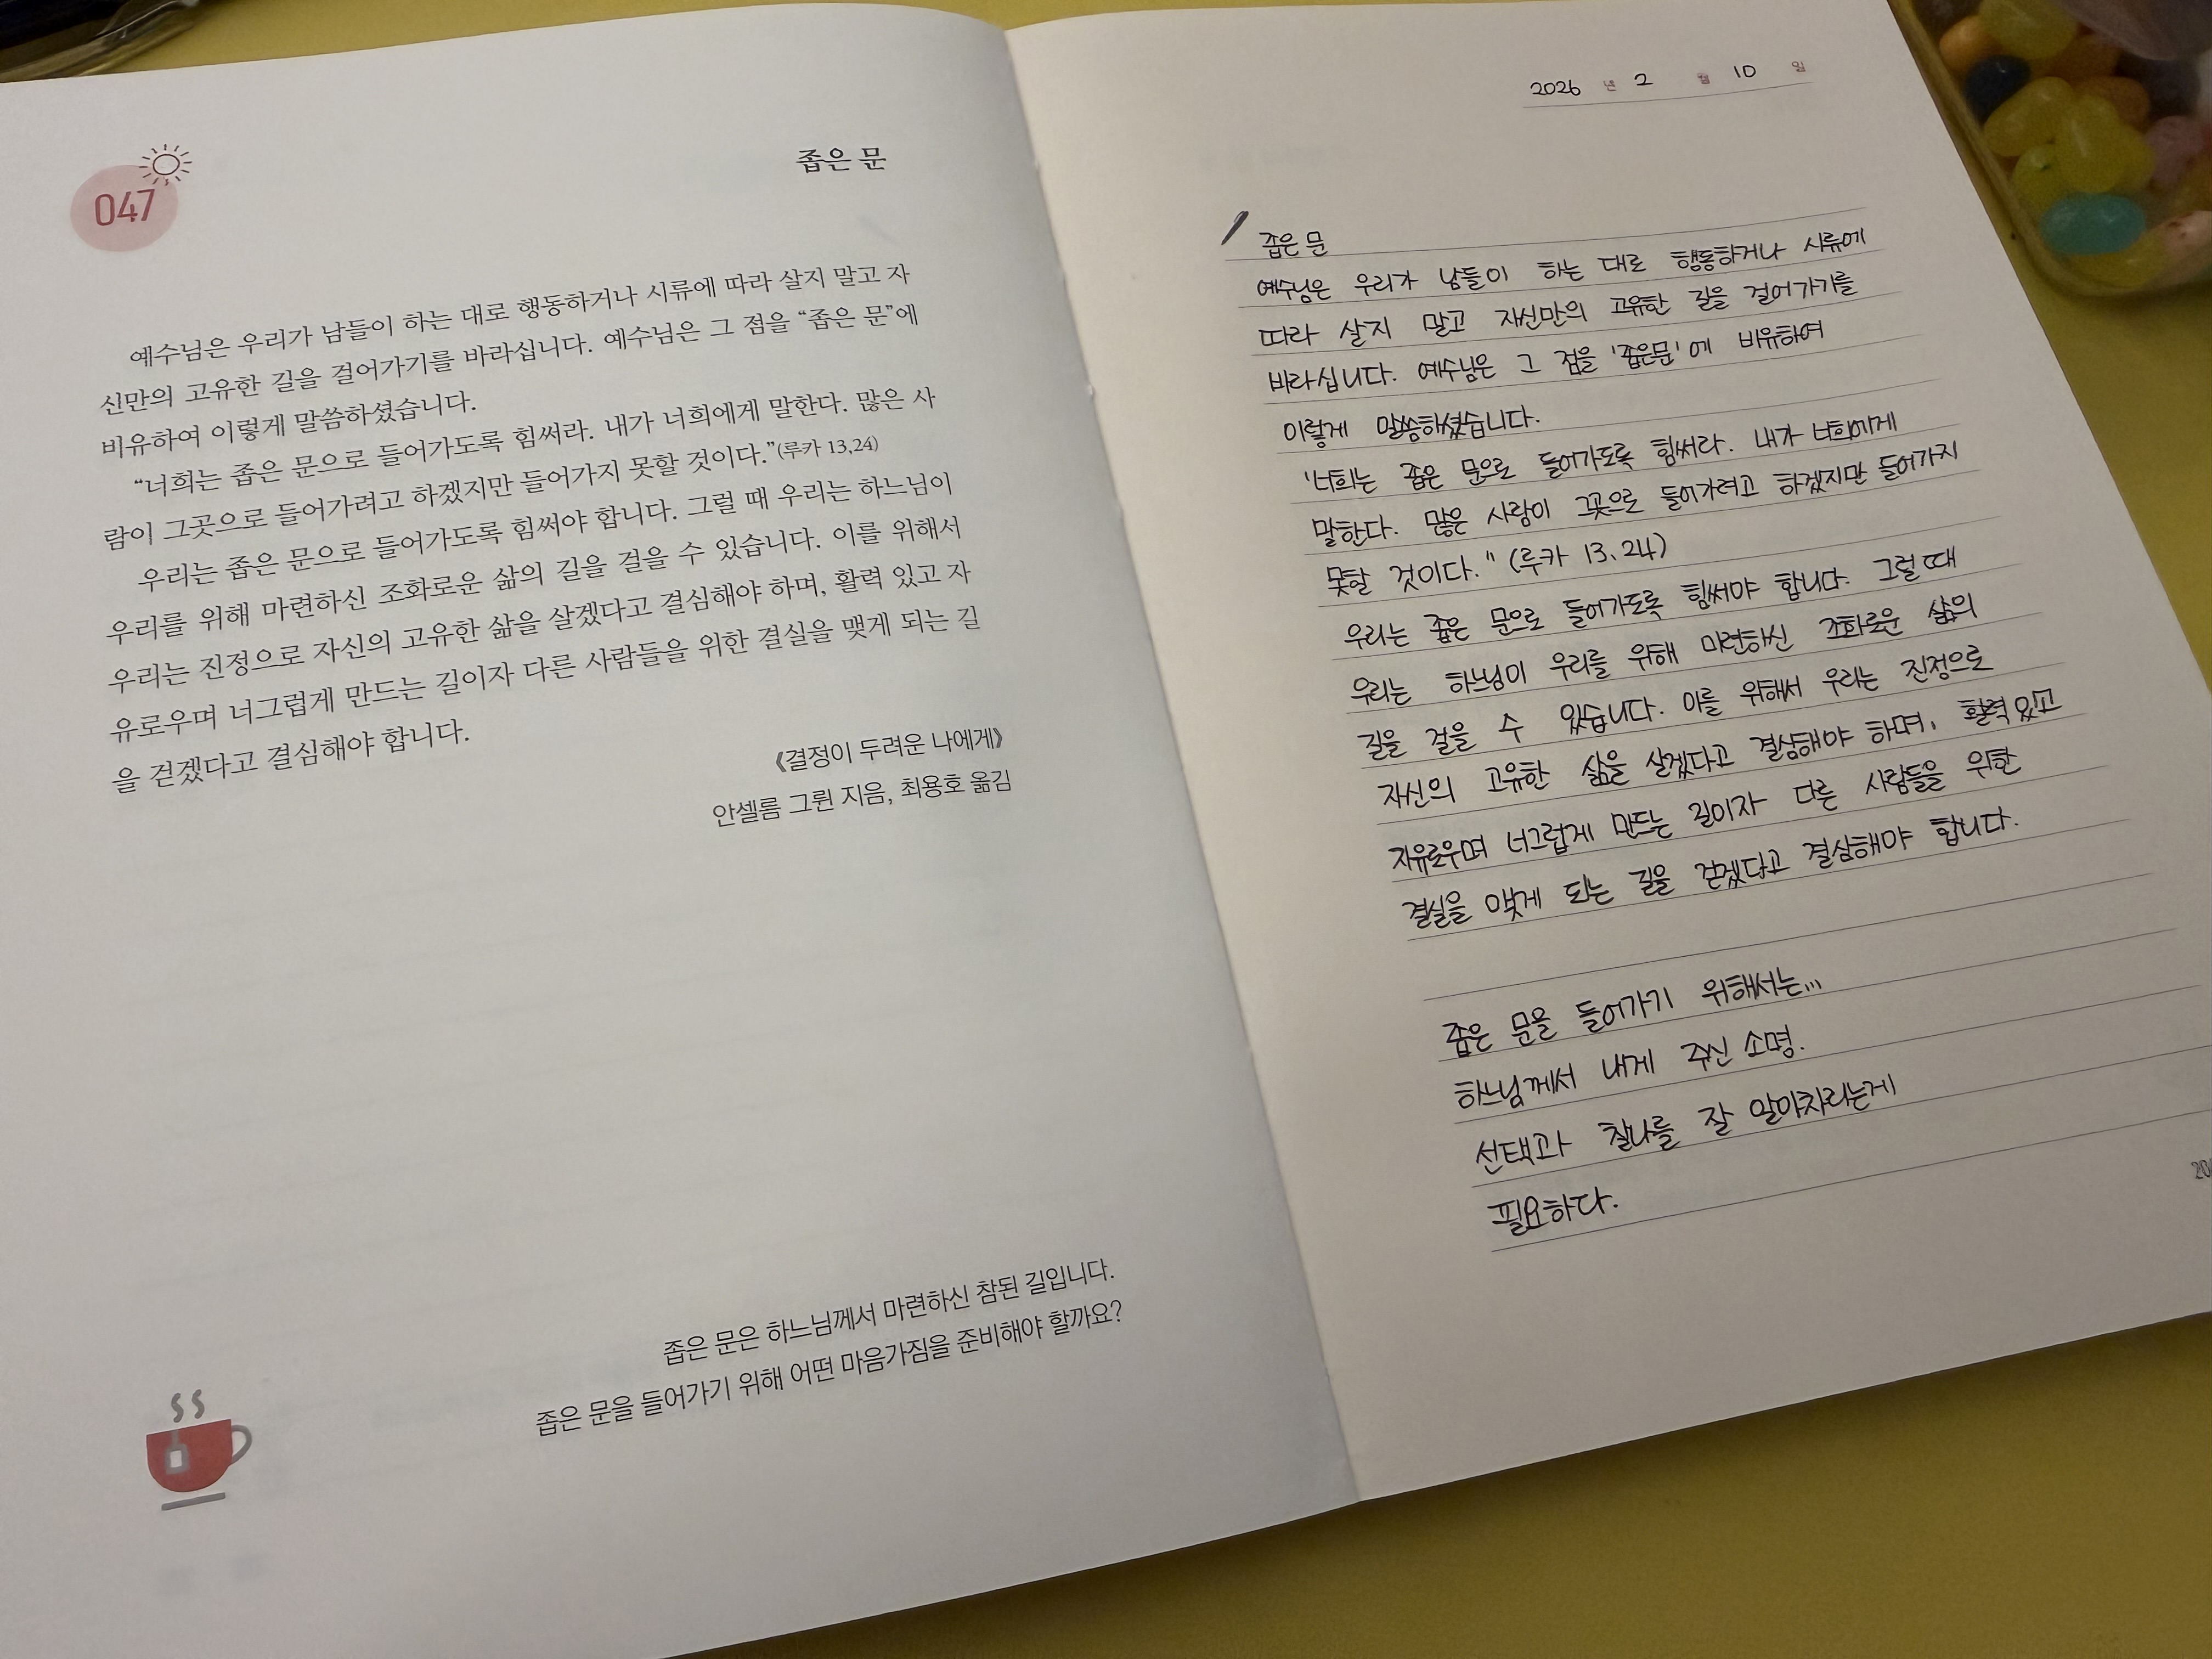 047
좁은 문
예수님은 우리가 남들이 하는 대로 행동하거나 시류에 따라 살지 말고 자
신만의 고유한 길을 걸어가기를 바라십니다. 예수님은 그 점을 “좁은 문”에
비유하여 이렇게 말씀하셨습니다.
“너희는 좁은 문으로 들어가도록 힘써라. 내가 너희에게 말한다. 많은 사
람이 그곳으로 들어가려고 하겠지만 들어가지 못할 것이다.”(루카 13,24)
우리는 좁은 문으로 들어가도록 힘써야 합니다. 그럴 때 우리는 하느님이
우리를 위해 마련하신 조화로운 삶의 길을 걸을 수 있습니다. 이를 위해서
우리는 진정으로 자신의 고유한 삶을 살겠다고 결심해야 하며, 활력 있고 자
유로우며 너그럽게 만드는 길이자 다른 사람들을 위한 결실을 맺게 되는 길
을 걷겠다고 결심해야 합니다.
《결정이 두려운 나에게》
안셀름 그륀 지음, 최용호 옮김
좁은 문은 하느님께서 마련하신 참된 길입니다.
좁은 문을 들어가기 위해 어떤 마음가짐을 준비해야 할까요?
2026 년 2 월 10 일
좁은 문
예수님은 우리가 남들이 하는 대로 행동하거나 시류에
따라 살지 말고 자신만의 고유한 길을 걸어가기를
바라십니다. 예수님은 그 점을 '좁은문'에 비유하여
이렇게 말씀하셨습니다.
'너희는 좁은 문으로 들어가도록 힘써라. 내가 너희에게
말한다. 많은 사람이 그곳으로 들어가려고 하겠지만 들어가지
못할 것이다." (루카 13.24)
우리는 좁은 문으로 들어가도록 힘써야 합니다. 그럴 때
우리는 하느님이 우리를 위해 마련하신 조화로운 삶의
길을 걸을 수 있습니다. 이를 위해서 우리는 진정으로
자신의 고유한 삶을 살겠다고 결심해야 하며, 활력 있고
자유로우며 너그럽게 만드는 길이자 다른 사람들을 위한
결실을 맺게 되는 길을 걷겠다고 결심해야 합니다.
좁은 문을 들어가기 위해서는...
하느님께서 내게 주신 소명.
선택과 찰나를 잘 알아차리는게
필요하다.